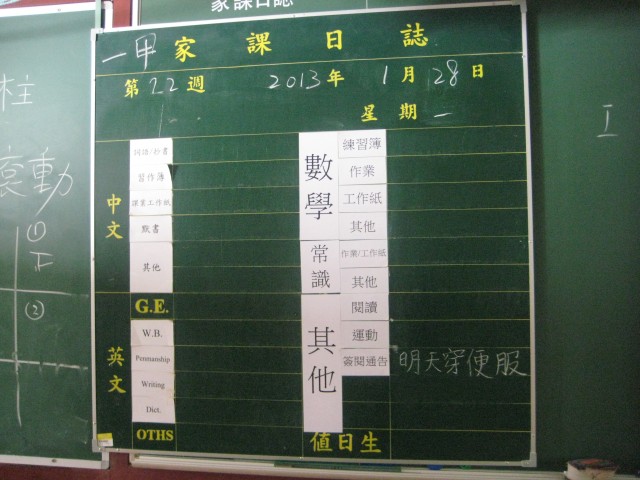 家課日誌
一甲 家課日誌
第22週 2013年1月28日
星期一
中文
詞語/抄書
習作簿
課業工作紙
默書
其他
G.E.
英文
W.B.
Penmanship
Writing
Dict.
OTHS
數學
練習簿
作業
工作紙
其他
常識
作業/工作紙
其他
其他
閱讀
運動
簽閱通告 明天穿便服
值日生
柱
動
①
正
②
I